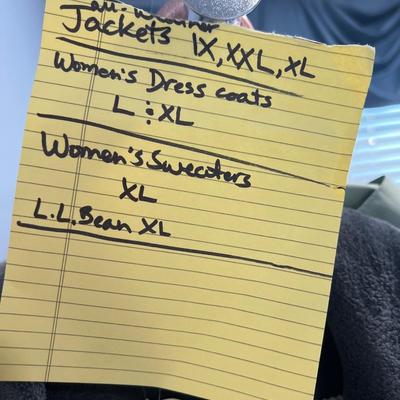 Jackets 1X, XXL, XL
Women's Dress coats
L : XL
Women's Sweaters
XL
L.L. Bean XL